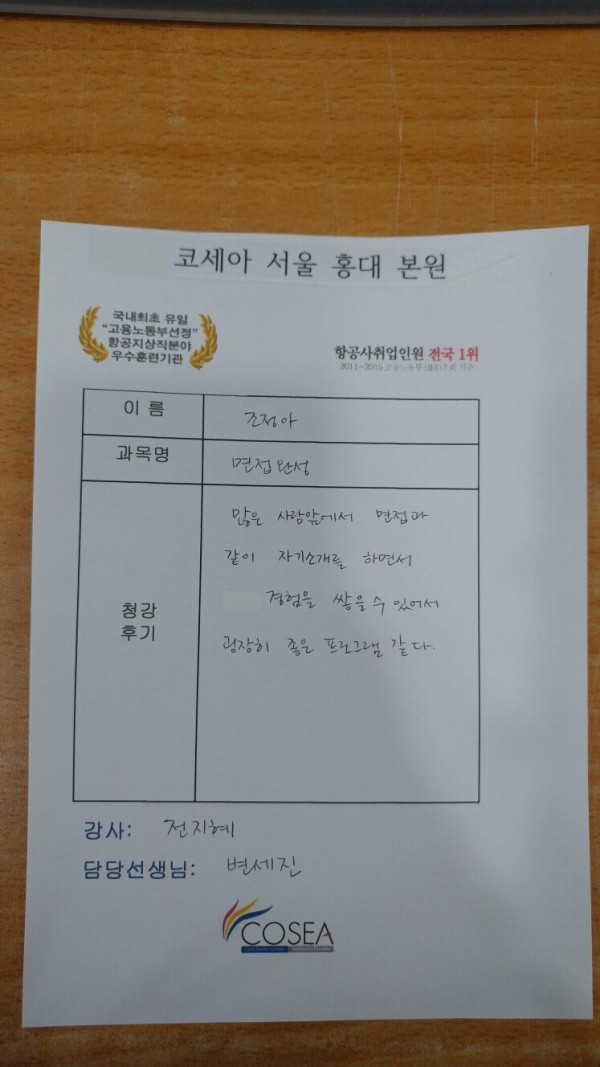 코세아 서울 홍대 본원
국내최초 유일
"고용노동부선정"
항공지상직분야
우수훈련기관
항공사취업인원 전국 1위
2011~2015 고용노동부 HRD조회 기준
이 름
조정아
과목명
면접완성
청강
후기
많은 사람앞에서 면접과
같이 자기소개를 하면서
경험을 쌓을 수 있어서
굉장히 좋은 프로그램 같다.
강사: 전지혜
담당선생님: 변세진
COSEA